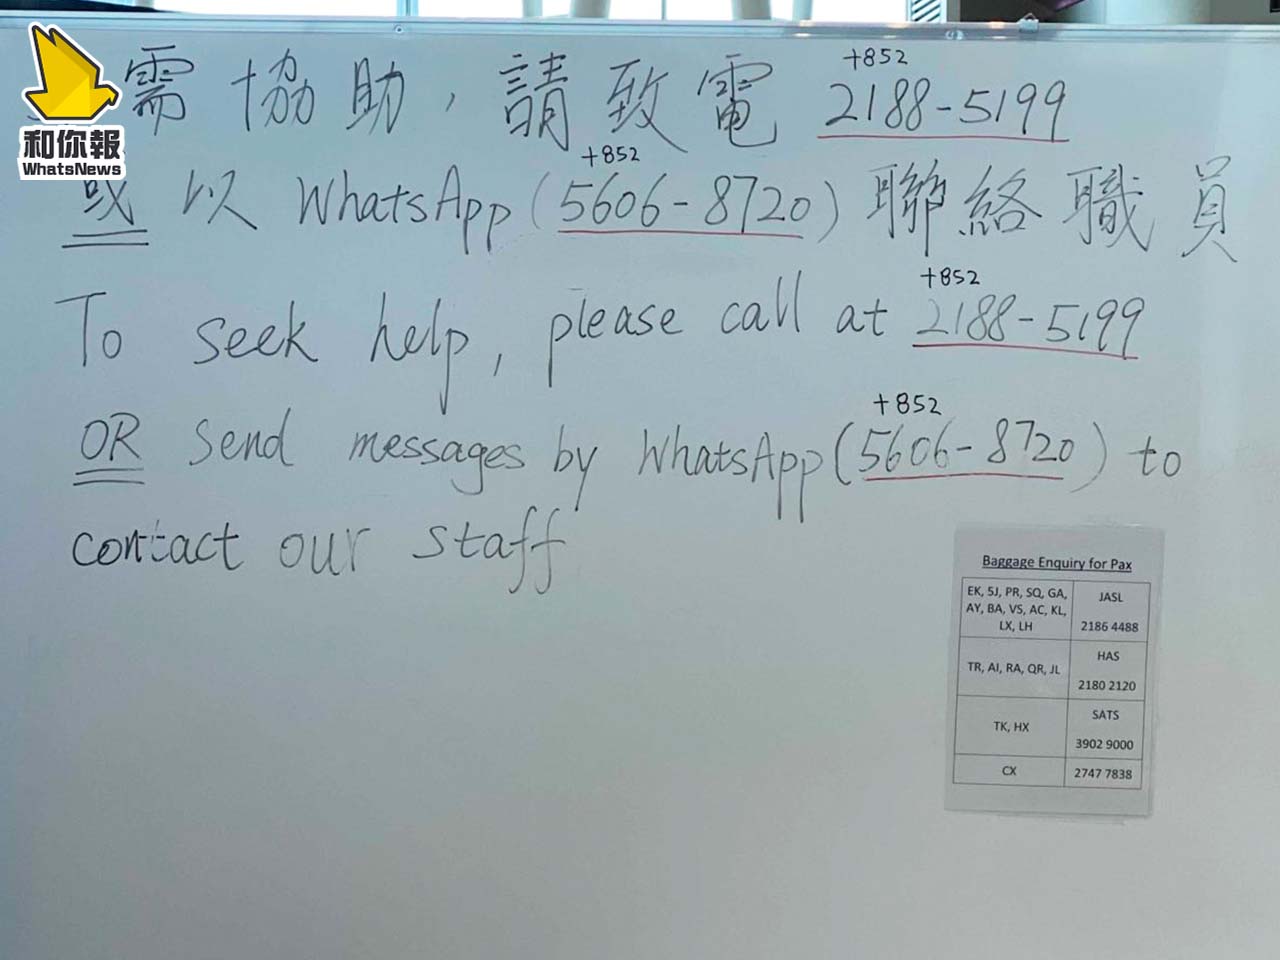 和你報
WhatsNews
需協助，請致電 +852 2188-5199
或以 WhatsApp (+852 5606-8720) 聯絡職員
To seek help, please call at +852 2188-5199
OR send messages by WhatsApp (+852 5606-8720) to
contact our staff
Baggage Enquiry for Pax
EK, 5J, PR, SQ, GA, AY, BA, VS, AC, KL, LX, LH JASL 2186 4488
TR, AI, RA, QR, JL HAS 2180 2120
TK, HX SATS 3902 9000
CX 2747 7838